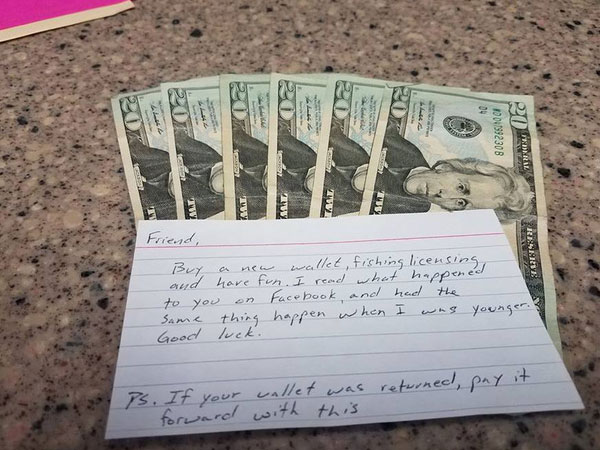 20
20
20
20
20
20
D4
FEDERAL RESERVE
TWE
Friend,
Buy a new wallet, fishing licensing,
and have fun. I read what happened
to you on Facebook, and had the
same thing happen when I was younger.
Good luck.
Ps. If your wallet was returned, pay it
forward with this